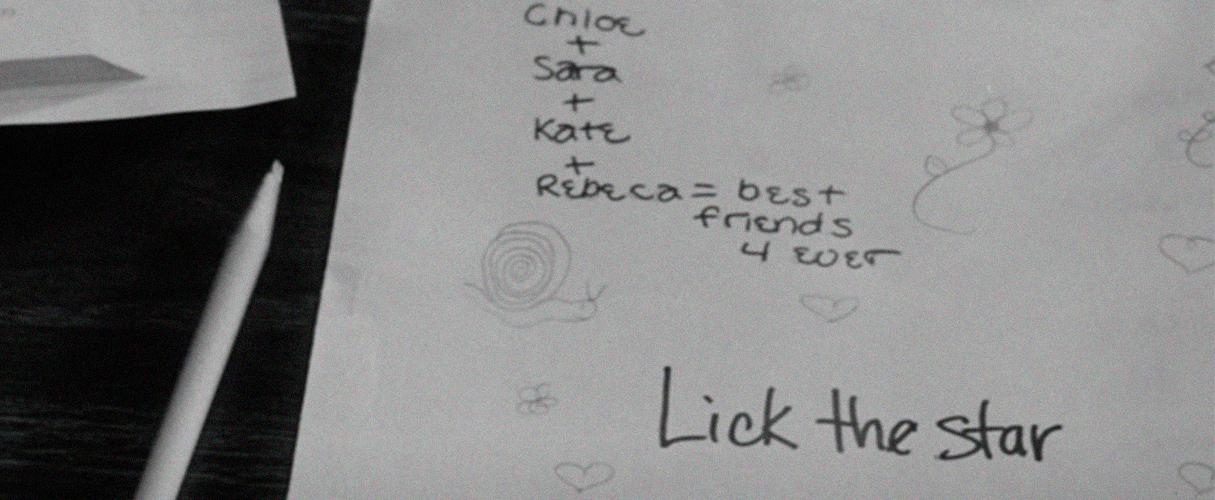 Chloe
+
Sara
+
Kate
+
Rebeca = best
friends
4 ever
Lick the star